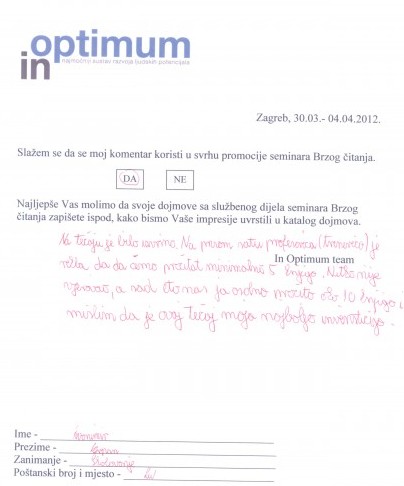 in optimum
najmoćniji sustav razvoja ljudskih potencijala
Zagreb, 30.03.- 04.04.2012.
Slažem se da se moj komentar koristi u svrhu promocije seminara Brzog čitanja.
DA NE
Najljepše Vas molimo da svoje dojmove sa službenog dijela seminara Brzog
čitanja zapišete ispod, kako bismo Vaše impresije uvrstili u katalog dojmova.
Na tečaju je bilo Na prvom satu profesorica je
In Optimum team
rekla da ćemo pročitat minimalno 5 knjiga. Nitko nije
vjerovao, a sad eto nas ja osobno pročito oko 10 knjiga i
mislim da je ovaj tečaj moja najbolja investicija.
Ime -
Prezime -
Zanimanje -
Poštanski broj i mjesto -